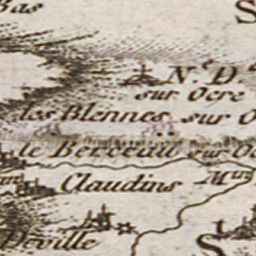 Bas
S
N.e D
sur Ocre
les Blennes sur O
le Berceau sur Oc
Claudins Min
Deville
S